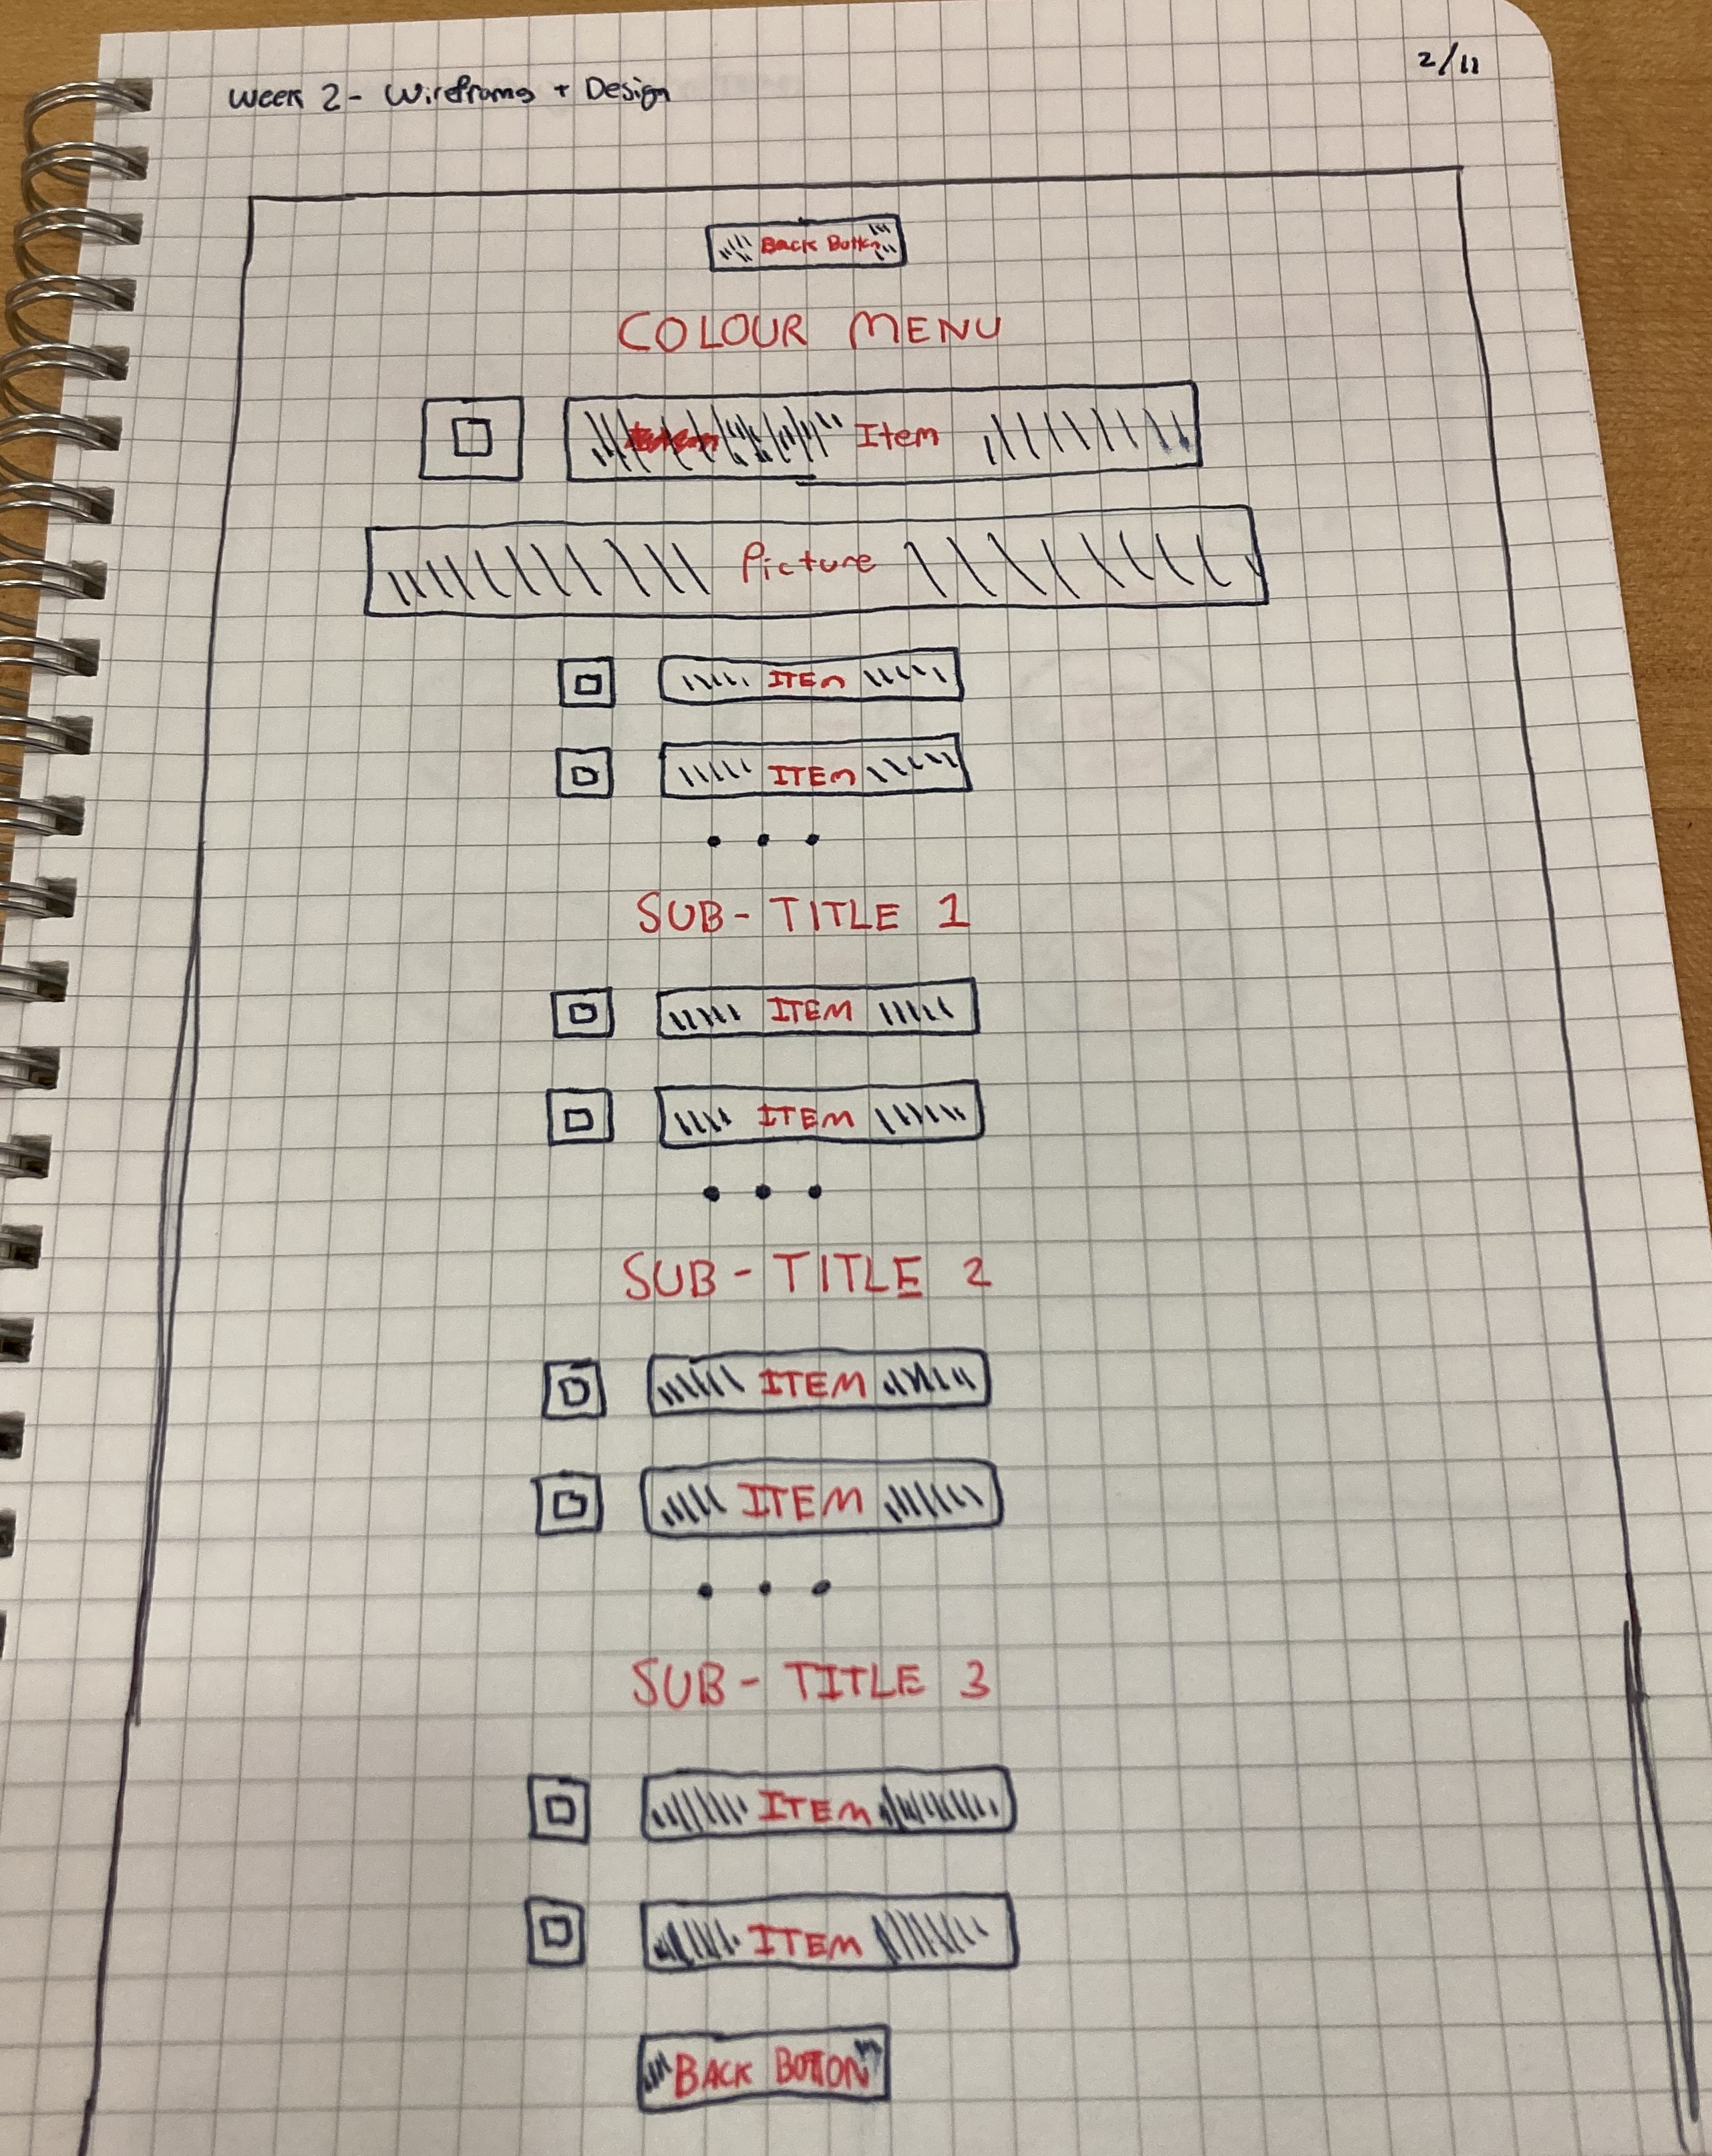 Week 2 - Wireframs + Design
2/11
Back Button
COLOUR MENU
Item
Picture
ITEm
ITEm
SUB-TITLE 1
ITEM
ITEM
SUB-TITLE 2
ITEM
ITEM
SUB-TITLE 3
ITEM
ITEM
BACK BUTTON